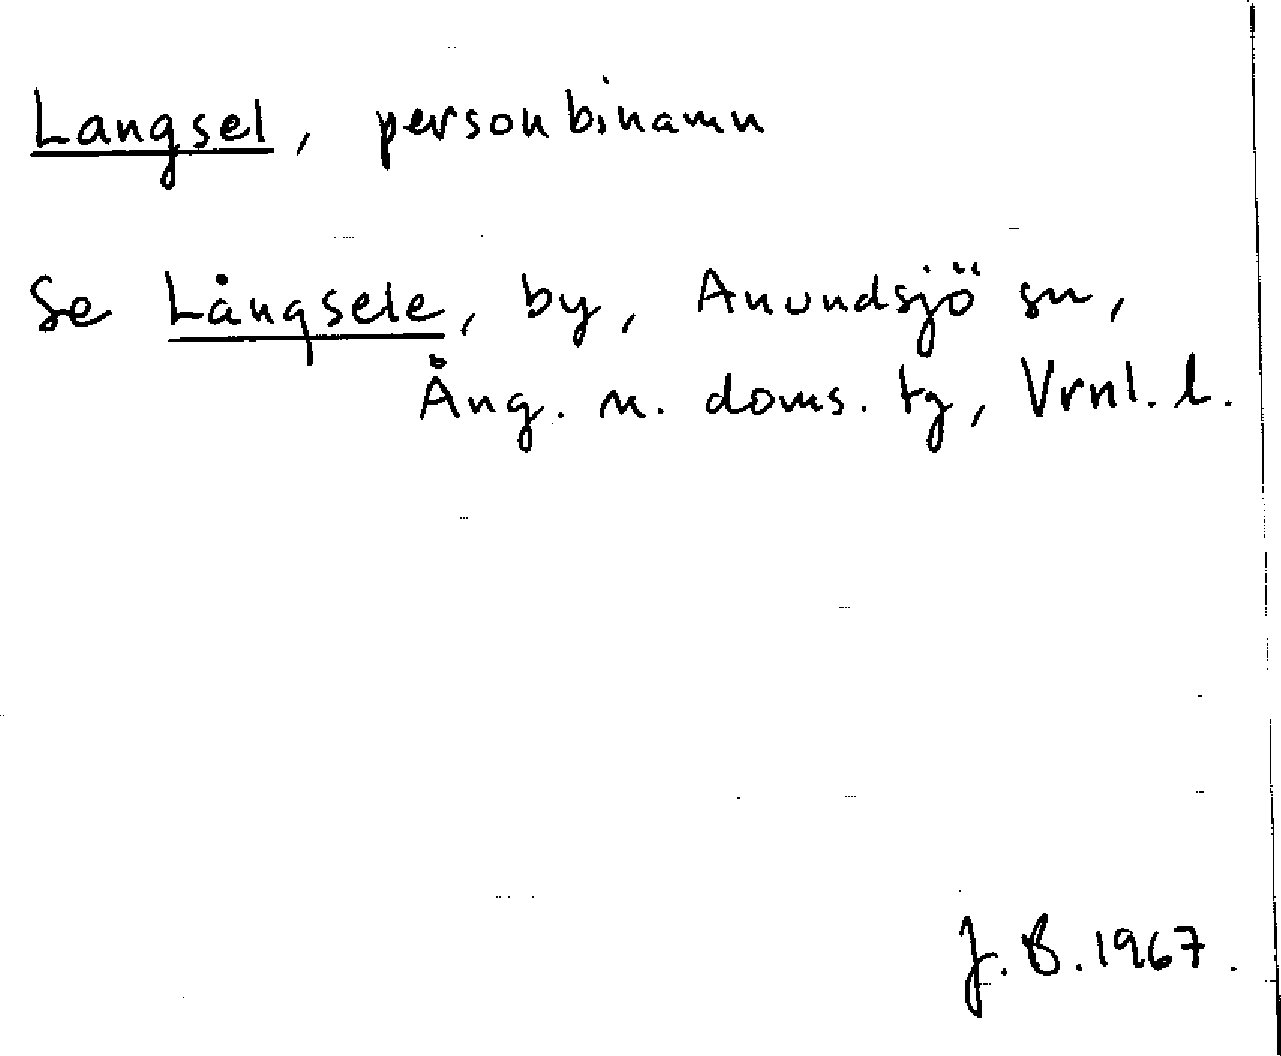 Langsel, personbinamn
Se Långsele, by, Anundsjö sn,
Ång. n. doms. tg, Vrnl. l.
J. B. 1967.